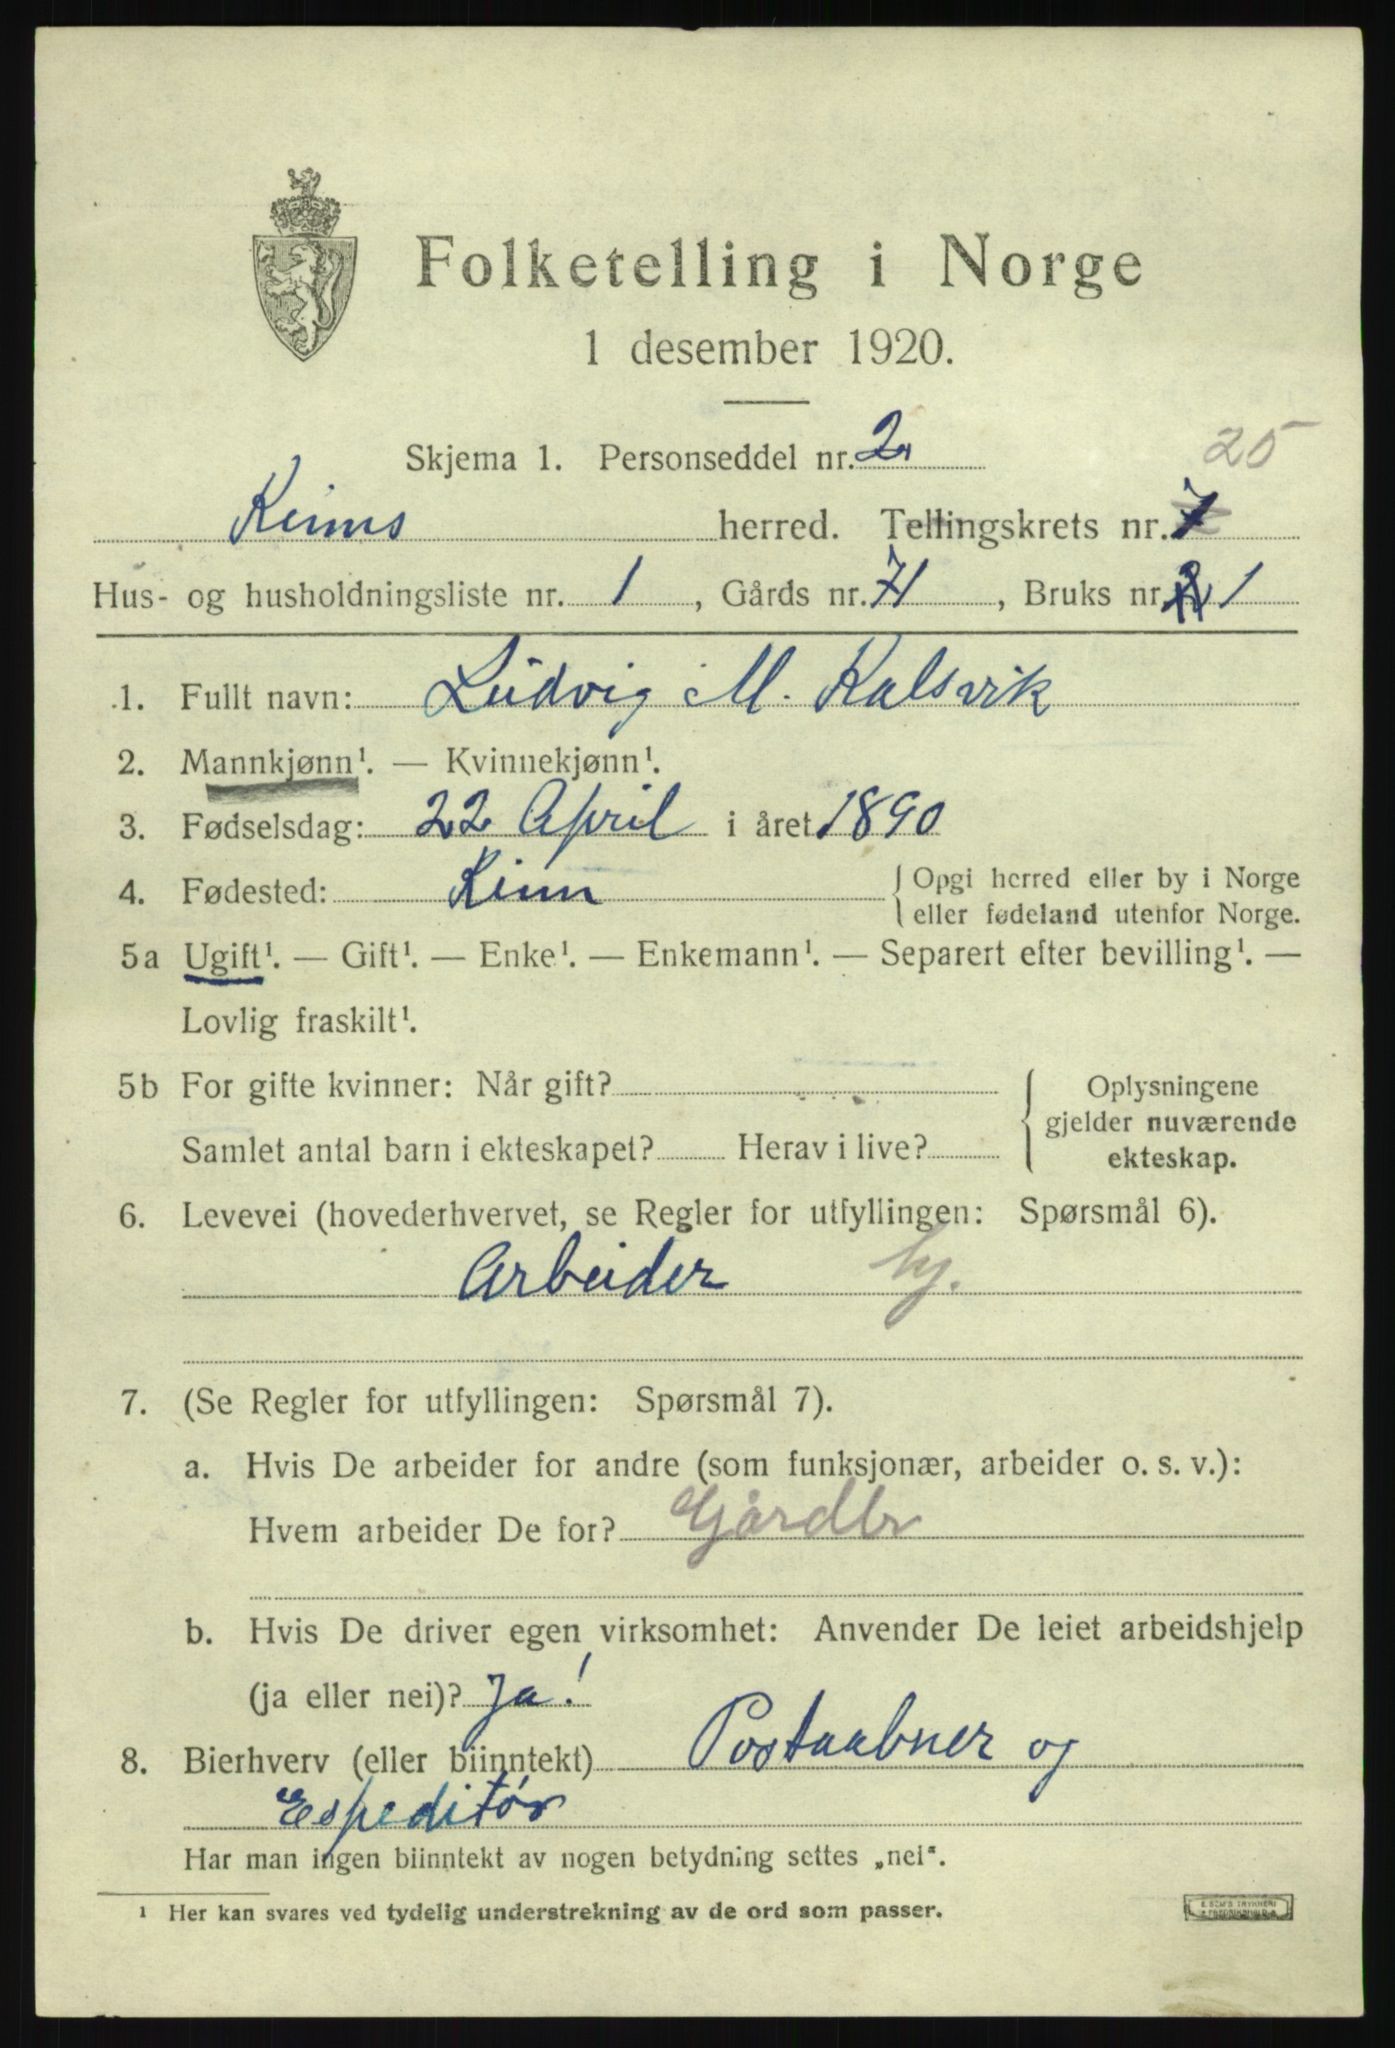 Folketelling i Norge
1 desember 1920.
Skjema 1. Personseddel nr. 2
25
Kinns herred. Tellingskrets nr. 7
Hus- og husholdningsliste nr. 1, Gårds nr. 71, Bruks nr. 1
1. Fullt navn: Ludvig M. Kalsvik
2. Mannkjønn¹. — Kvinnekjønn¹.
3. Fødselsdag: 22 April i året 1890
4. Fødested: Kinn { Opgi herred eller by i Norge
eller fødeland utenfor Norge.
5a Ugift¹. — Gift¹. — Enke¹. — Enkemann¹. — Separert efter bevilling¹. —
Lovlig fraskilt¹.
5b For gifte kvinner: Når gift? { Oplysningene
gjelder nuværende
Samlet antal barn i ekteskapet? Herav i live? ekteskap.
6. Levevei (hovederhvervet, se Regler for utfyllingen: Spørsmål 6).
Arbeider hj.
7. (Se Regler for utfyllingen: Spørsmål 7).
a. Hvis De arbeider for andre (som funksjonær, arbeider o. s. v.):
Hvem arbeider De for? Gårdbr
b. Hvis De driver egen virksomhet: Anvender De leiet arbeidshjelp
(ja eller nei)? Ja!
8. Bierhverv (eller biinntekt) Postaabner og
Espeditør
Har man ingen biinntekt av nogen betydning settes „nei“.
¹ Her kan svares ved tydelig understrekning av de ord som passer.